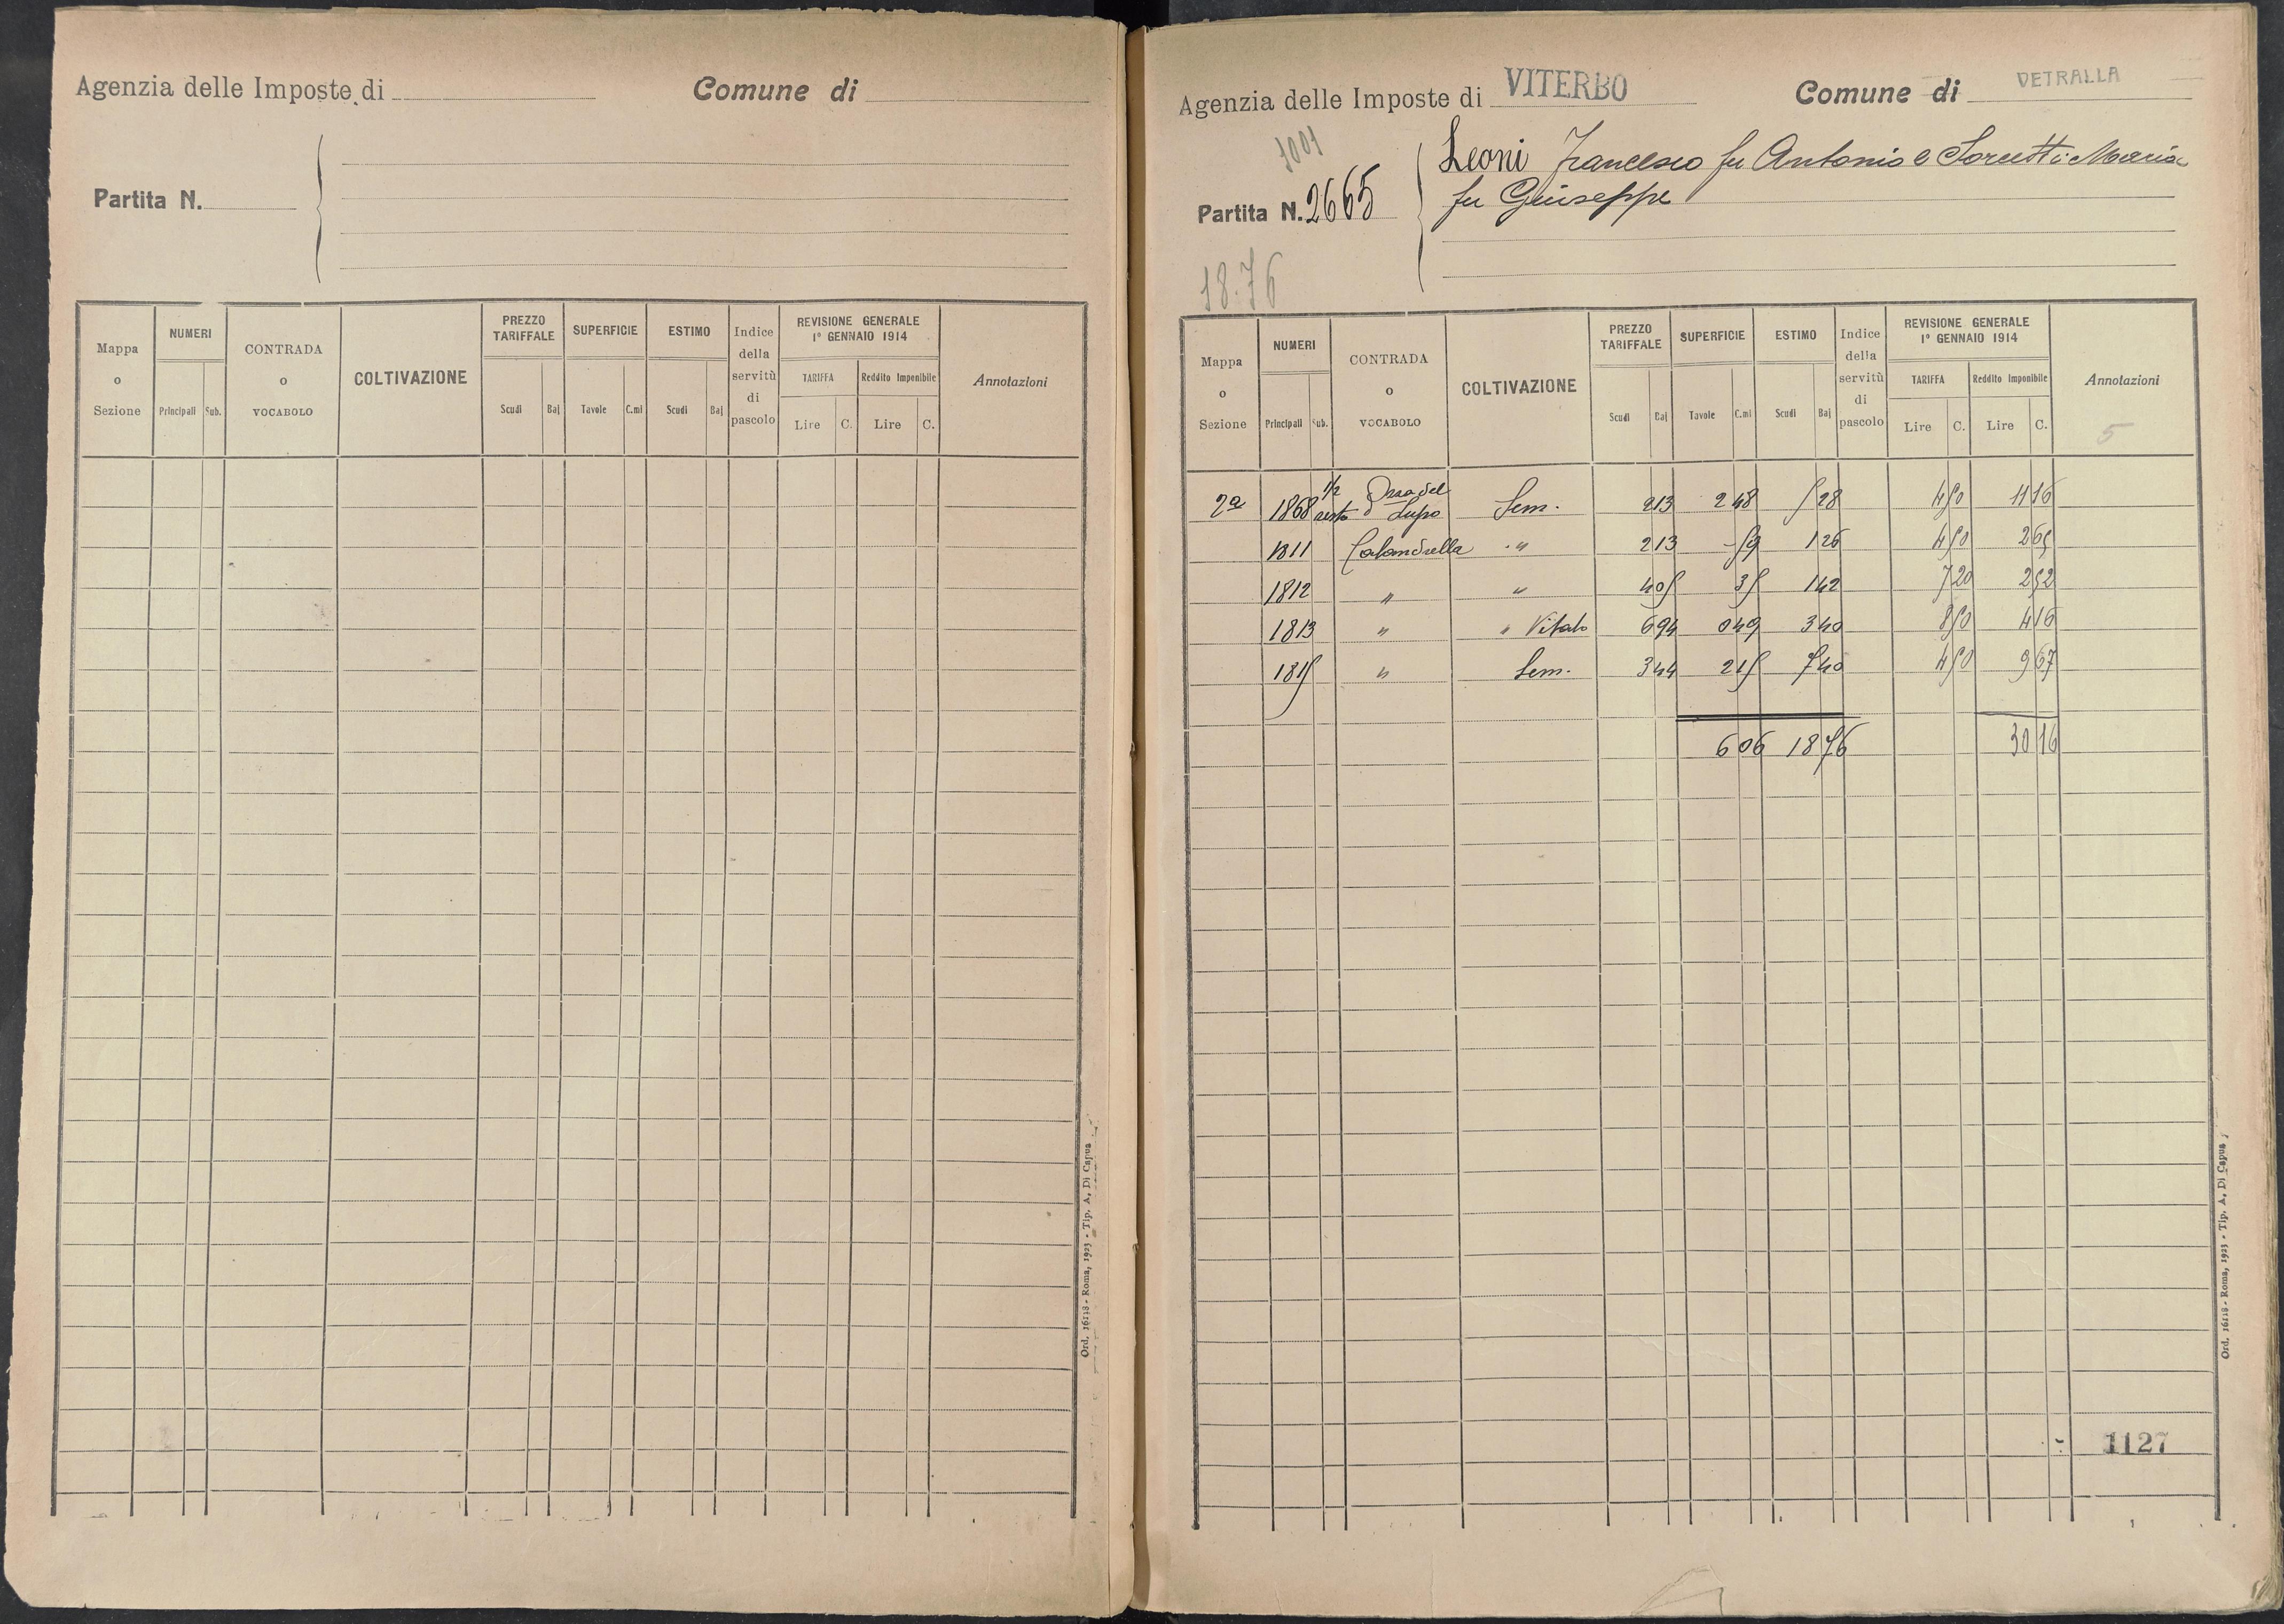 Agenzia delle Imposte di
Comune di
Partita N.
Mappa o Sezione
NUMERI
Principali
Sub.
CONTRADA o VOCABOLO
COLTIVAZIONE
PREZZO TARIFFALE
Scudi
Baj
SUPERFICIE
Tavole
C.mi
ESTIMO
Scudi
Baj
Indice della servitù di pascolo
REVISIONE GENERALE
1° GENNAIO 1914
TARIFFA
Reddito Imponibile
Lire
C.
Lire
C.
Annotazioni
Ord. 16118 - Roma, 1923 - Tip. A. Di Capua
Agenzia delle Imposte di VITERBO
Comune di VETRALLA
1001
Partita N. 2665
Leoni Francesco fu Antonio e Maria
fu Giuseppe
18.76
Mappa o Sezione
NUMERI
Principali
Sub.
CONTRADA o VOCABOLO
COLTIVAZIONE
PREZZO TARIFFALE
Scudi
Baj
SUPERFICIE
Tavole
C.mi
ESTIMO
Scudi
Baj
Indice della servitù di pascolo
REVISIONE GENERALE
1° GENNAIO 1914
TARIFFA
Reddito Imponibile
Lire
C.
Lire
C.
Annotazioni
5
2a 1868 1/2 del Lupo Sem. 2 13 2 48 5 28 4 50 11 16
1811 Calandrella " 2 13 - 59 1 26 4 50 2 65
1812 " " 4 05 35 1 42 7 20 2 52
1813 " " Vitato 6 94 0 49 3 40 8 50 4 16
1815 " Sem. 3 44 2 15 7 40 4 50 9 67
6 06 18 76 30 16
1127
Ord. 16118 - Roma, 1923 - Tip. A. Di Capua